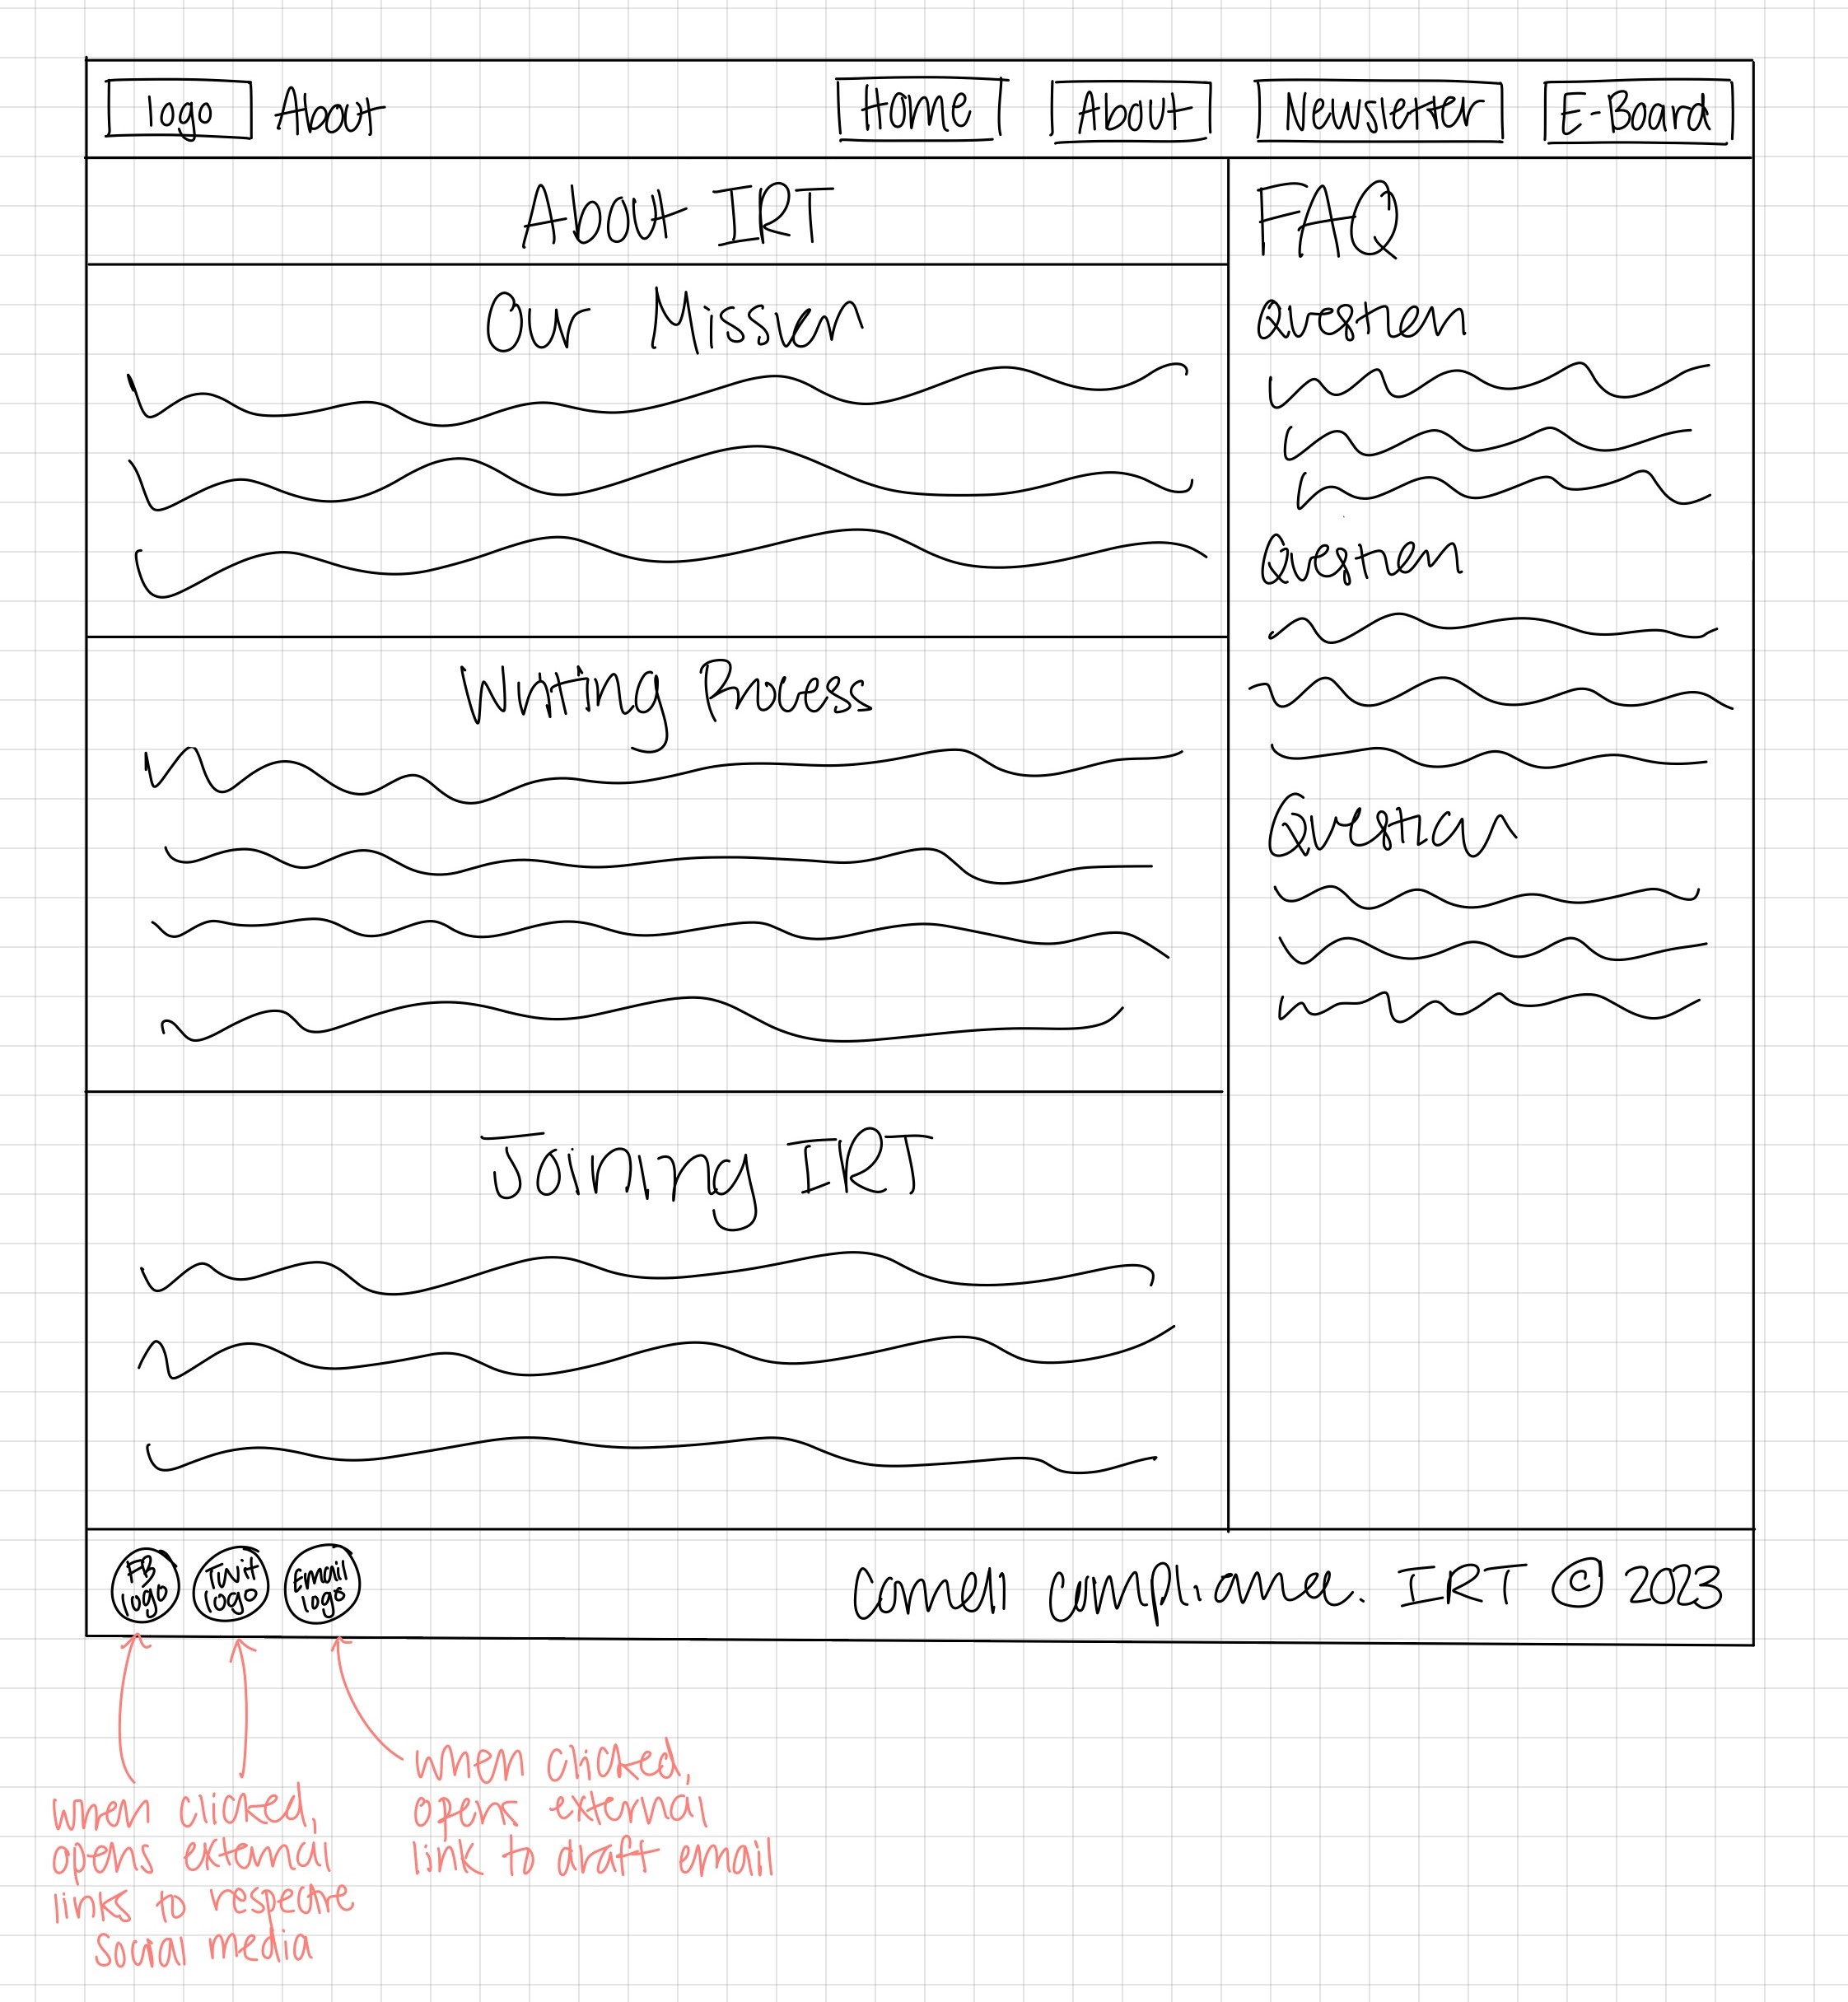 logo About Home About Newsletter E-Board
About IRT
Our Mission
Writing Process
Joining IRT
FAQ
Question
Question
Question
FB logo
Twit logo
Email logo
Cornell Compliance. IRT © 2023
when clicked,
opens external
links to respective
social media
when clicked,
opens external
link to draft email